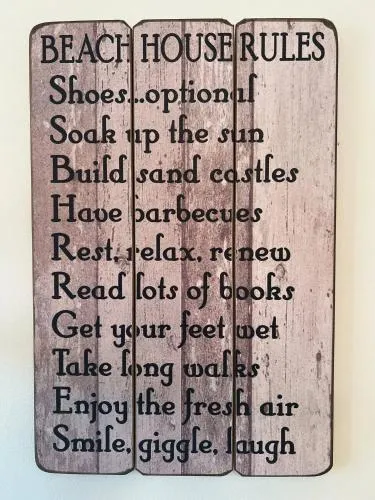 BEACH HOUSE RULES
Shoes...optional
Soak up the sun
Build sand castles
Have barbecues
Rest, relax, renew
Read lots of books
Get your feet wet
Take long walks
Enjoy the fresh air
Smile, giggle, laugh